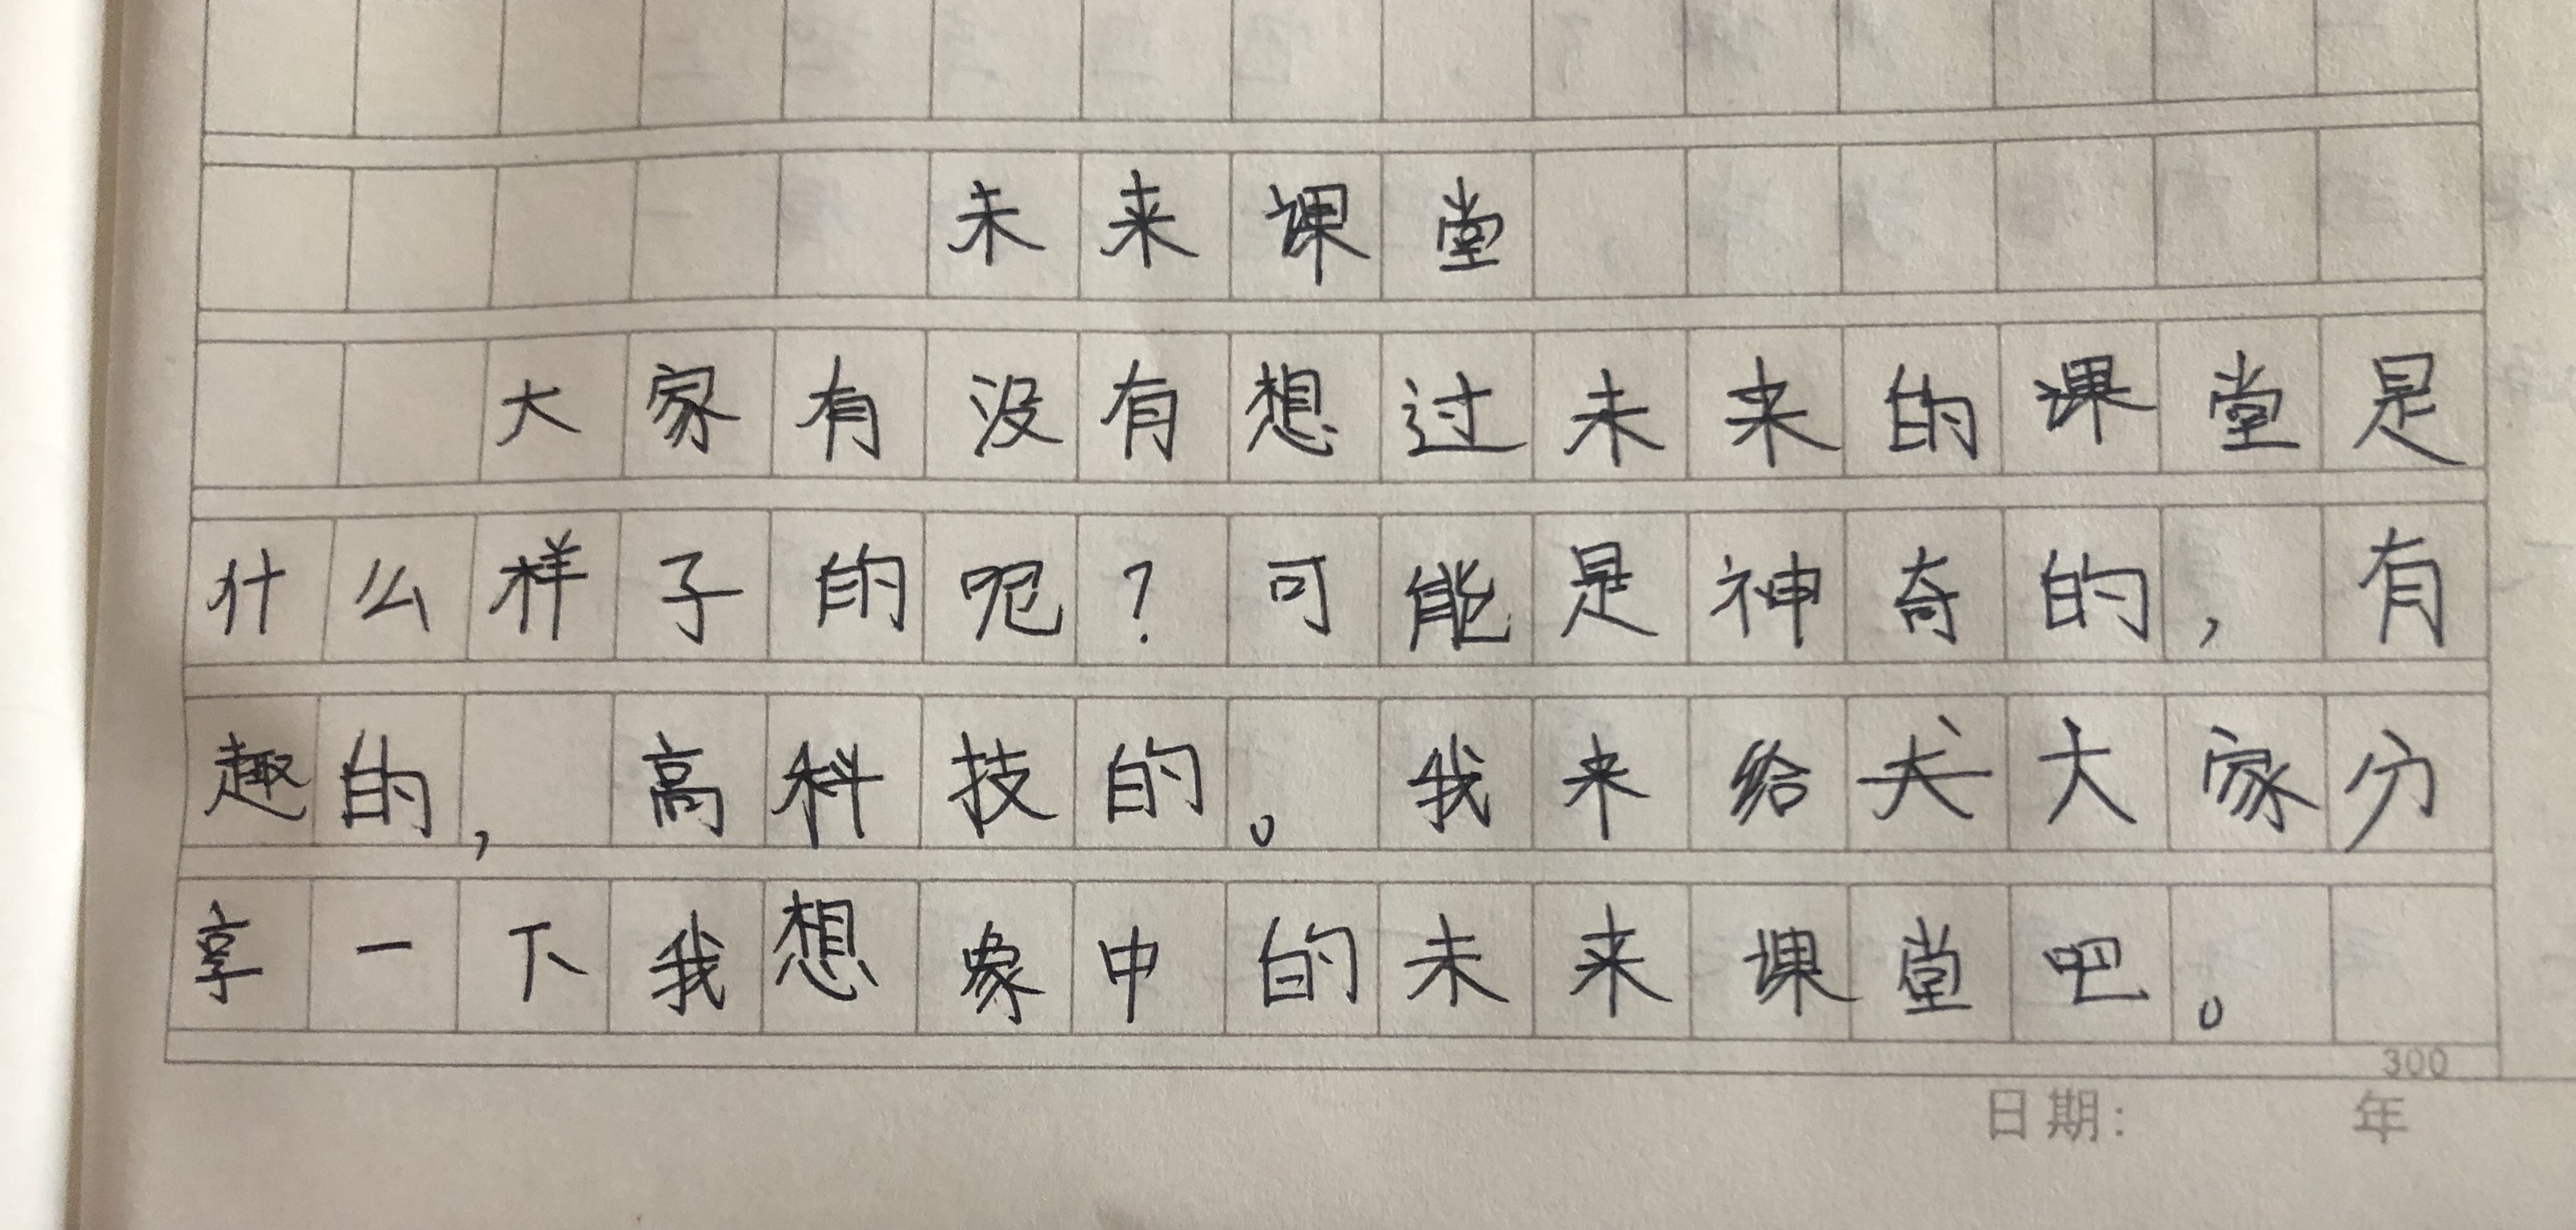 未来课堂
大家有没有想过未来的课堂是
什么样子的呢？可能是神奇的，有
趣的，高科技的。我来给大家分
享一下我想象中的未来课堂吧。
300
日期： 年